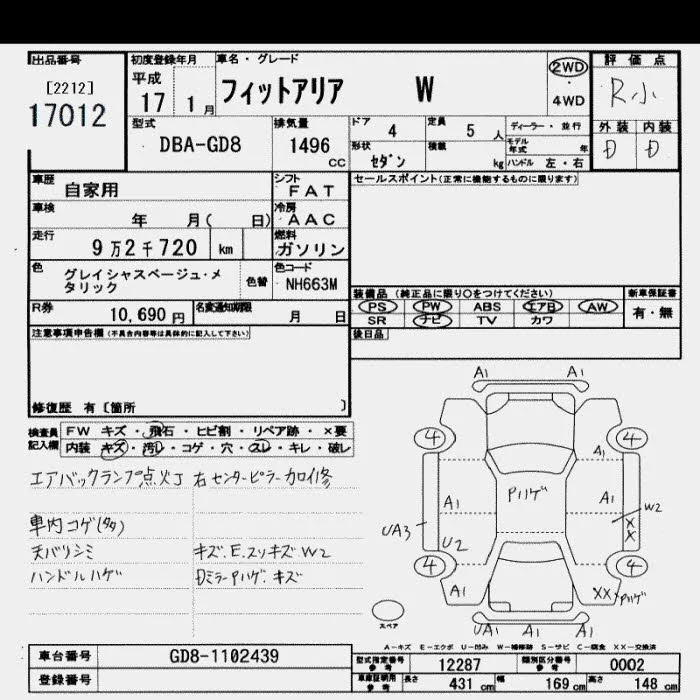 出品番号
[2212]
17012
初度登録年月
平成
17 1月
車名・グレード
フィットアリア W
2WD
・
4WD
評価点
R小
外装 内装
D D
型式
DBA-GD8
排気量
1496
CC
ドア
4
定員
5 人
ディーラー・並行
形状
セダン
積載
kg
モデル年式 年
ハンドル 左・右
車歴
自家用
シフト
FAT
セールスポイント(正常に機能するものに限ります)
車検
年 月( 日)
冷房
AAC
走行
9万2千720 km
燃料
ガソリン
色
グレイシャスベージュ・メタリック
色替
色コード
NH663M
装備品 (純正品に限り○をつけてください)
PS PW ABS エアB AW
SR ナビ TV カワ
新車保証書
有・無
R券
10,690 円
名変通知期限
月 日
後日品
注意事項申告欄(不具合内容等は具体的に記入して下さい)
修復歴 有 [箇所 ]
検査員記入欄
FW キズ・飛石・ヒビ割・リペア跡・×要
内装 キズ・汚レ・コゲ・穴・スレ・キレ・破レ
エアバックランプ点火J 右センターピラー加工修
車内コゲ(多)
天バリシミ キズ.E.スリキズW2
ハンドルハゲ Dミラー Pハゲ.キズ
A1 A1
4 4
A1
Pハゲ
A1 A1
W2
UA3
XX
U2
4 4
A1
XX Pハゲ
UA1 A1 A1
スペア
A-キズ E-エクボ U-凹み W-補修跡 S-サビ C-腐食 XX-交換済
車台番号
GD8-1102439
登録番号
型式指定番号
参考
12287
類別区分番号
参考
0002
車庫証明用
参考
長さ 431 cm
幅 169 cm
高さ 148 cm